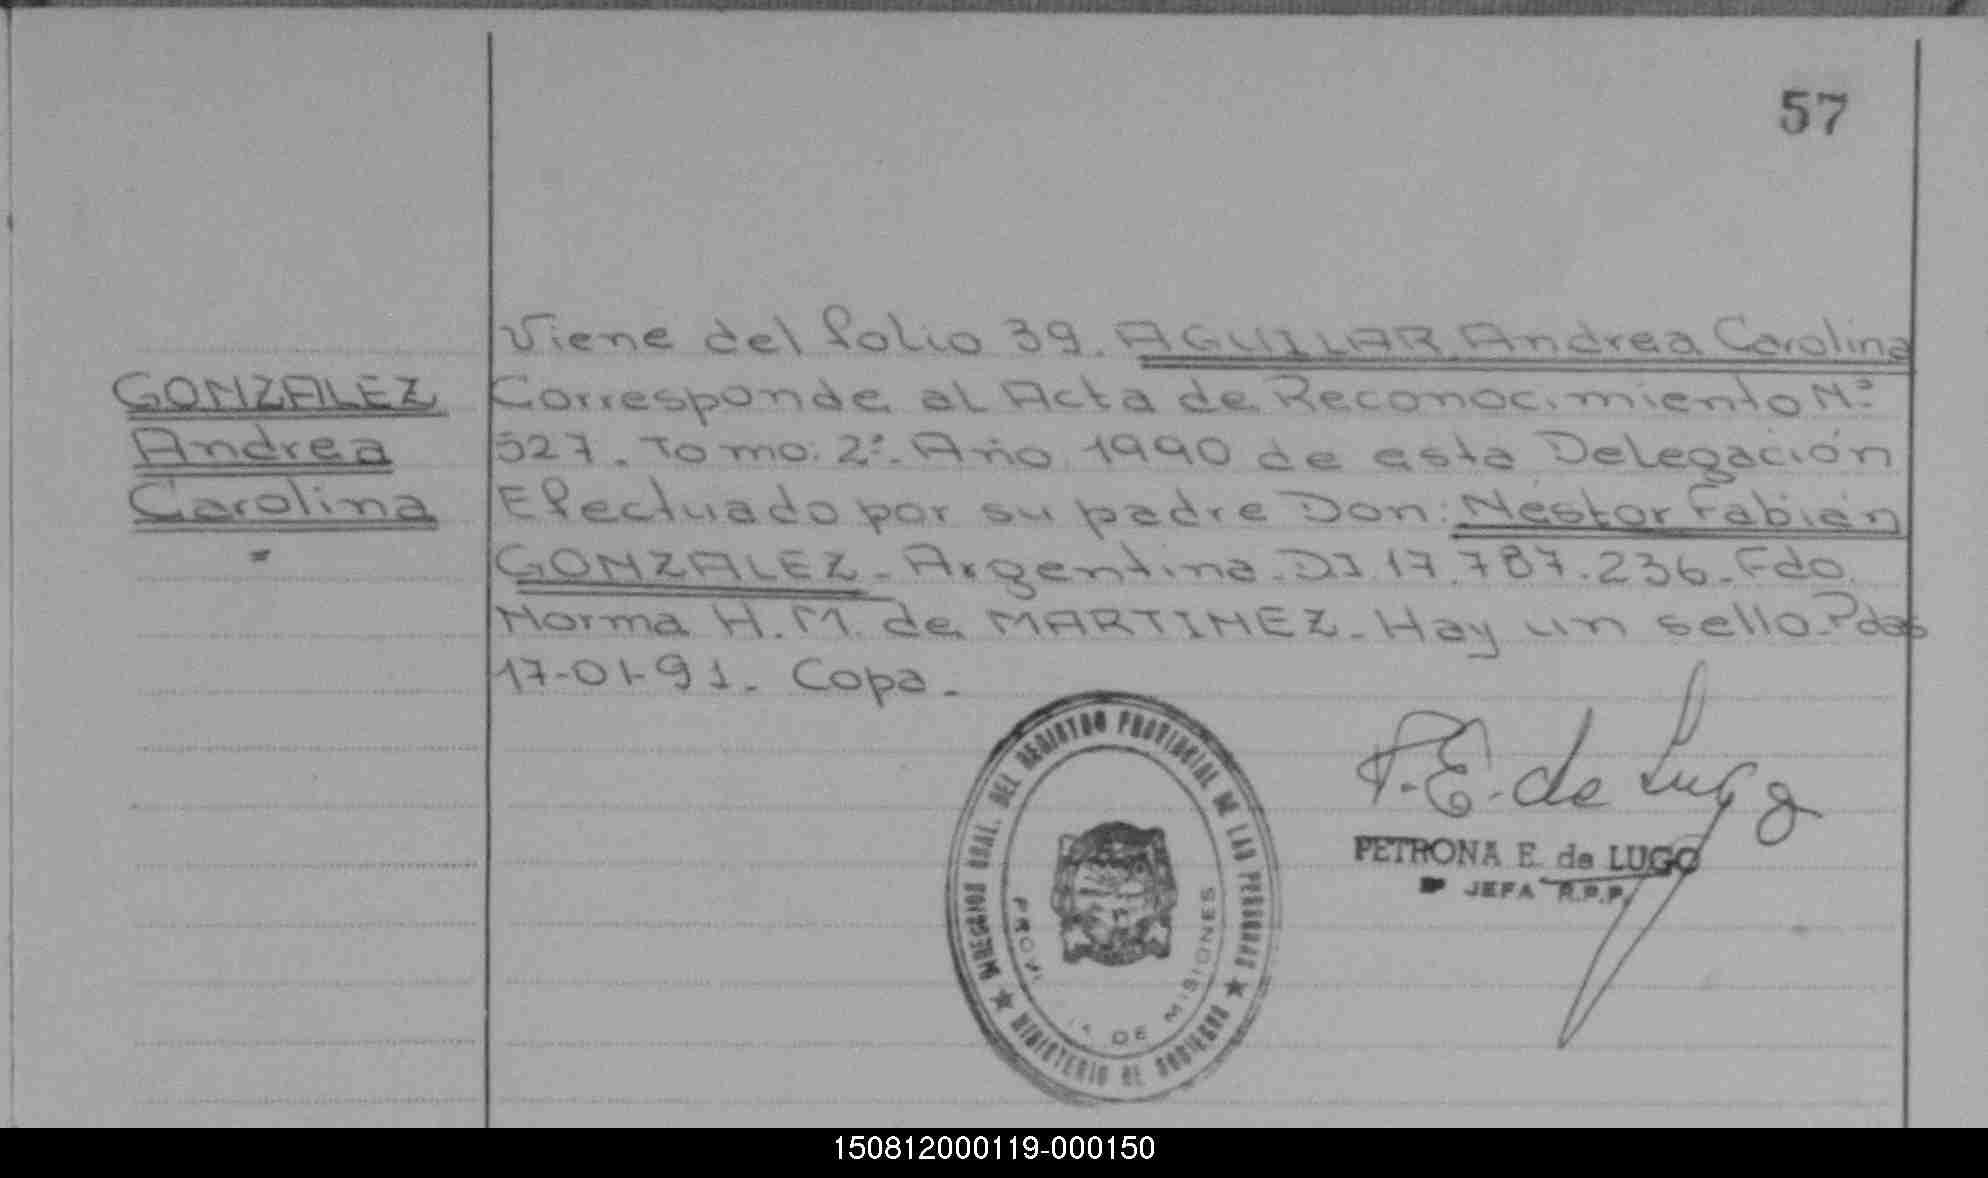 57
Viene del folio 39. AGUILAR, Andrea Carolina
GONZALEZ
Andrea
Carolina
=
Corresponde al Acta de Reconocimiento Nº
527. Tomo: 2º. Año 1990 de esta Delegación
Efectuado por su padre Don: Néstor Fabián
GONZALEZ. Argentina. DI. 17.787.236. Fdo.
Norma H. M. de MARTINEZ. Hay un sello. Pdas
17-01-91. Copa.
DEL REGISTRO PROVINCIAL DE LAS PERSONAS
MINISTERIO DE GOBIERNO
DE MISIONES
P. E. de Lugo
PETRONA E. de LUGO
JEFA R.P.P.
150812000119-000150